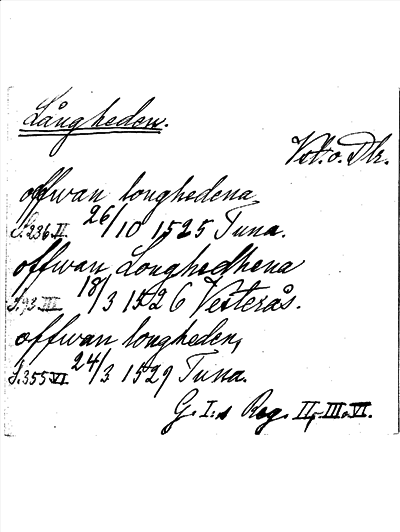 Långheden.
Vst. o. Dlr.
offwan longhedena
S. 236. II. 26/10 1525 Tuna.
offwan Longhedhena
S. 93 III 18/3 1526 Vesterås.
offwan longheden,
S. 355 VI. 24/3 1529 Tuna.
G. I:s Reg. II, III o. VI.